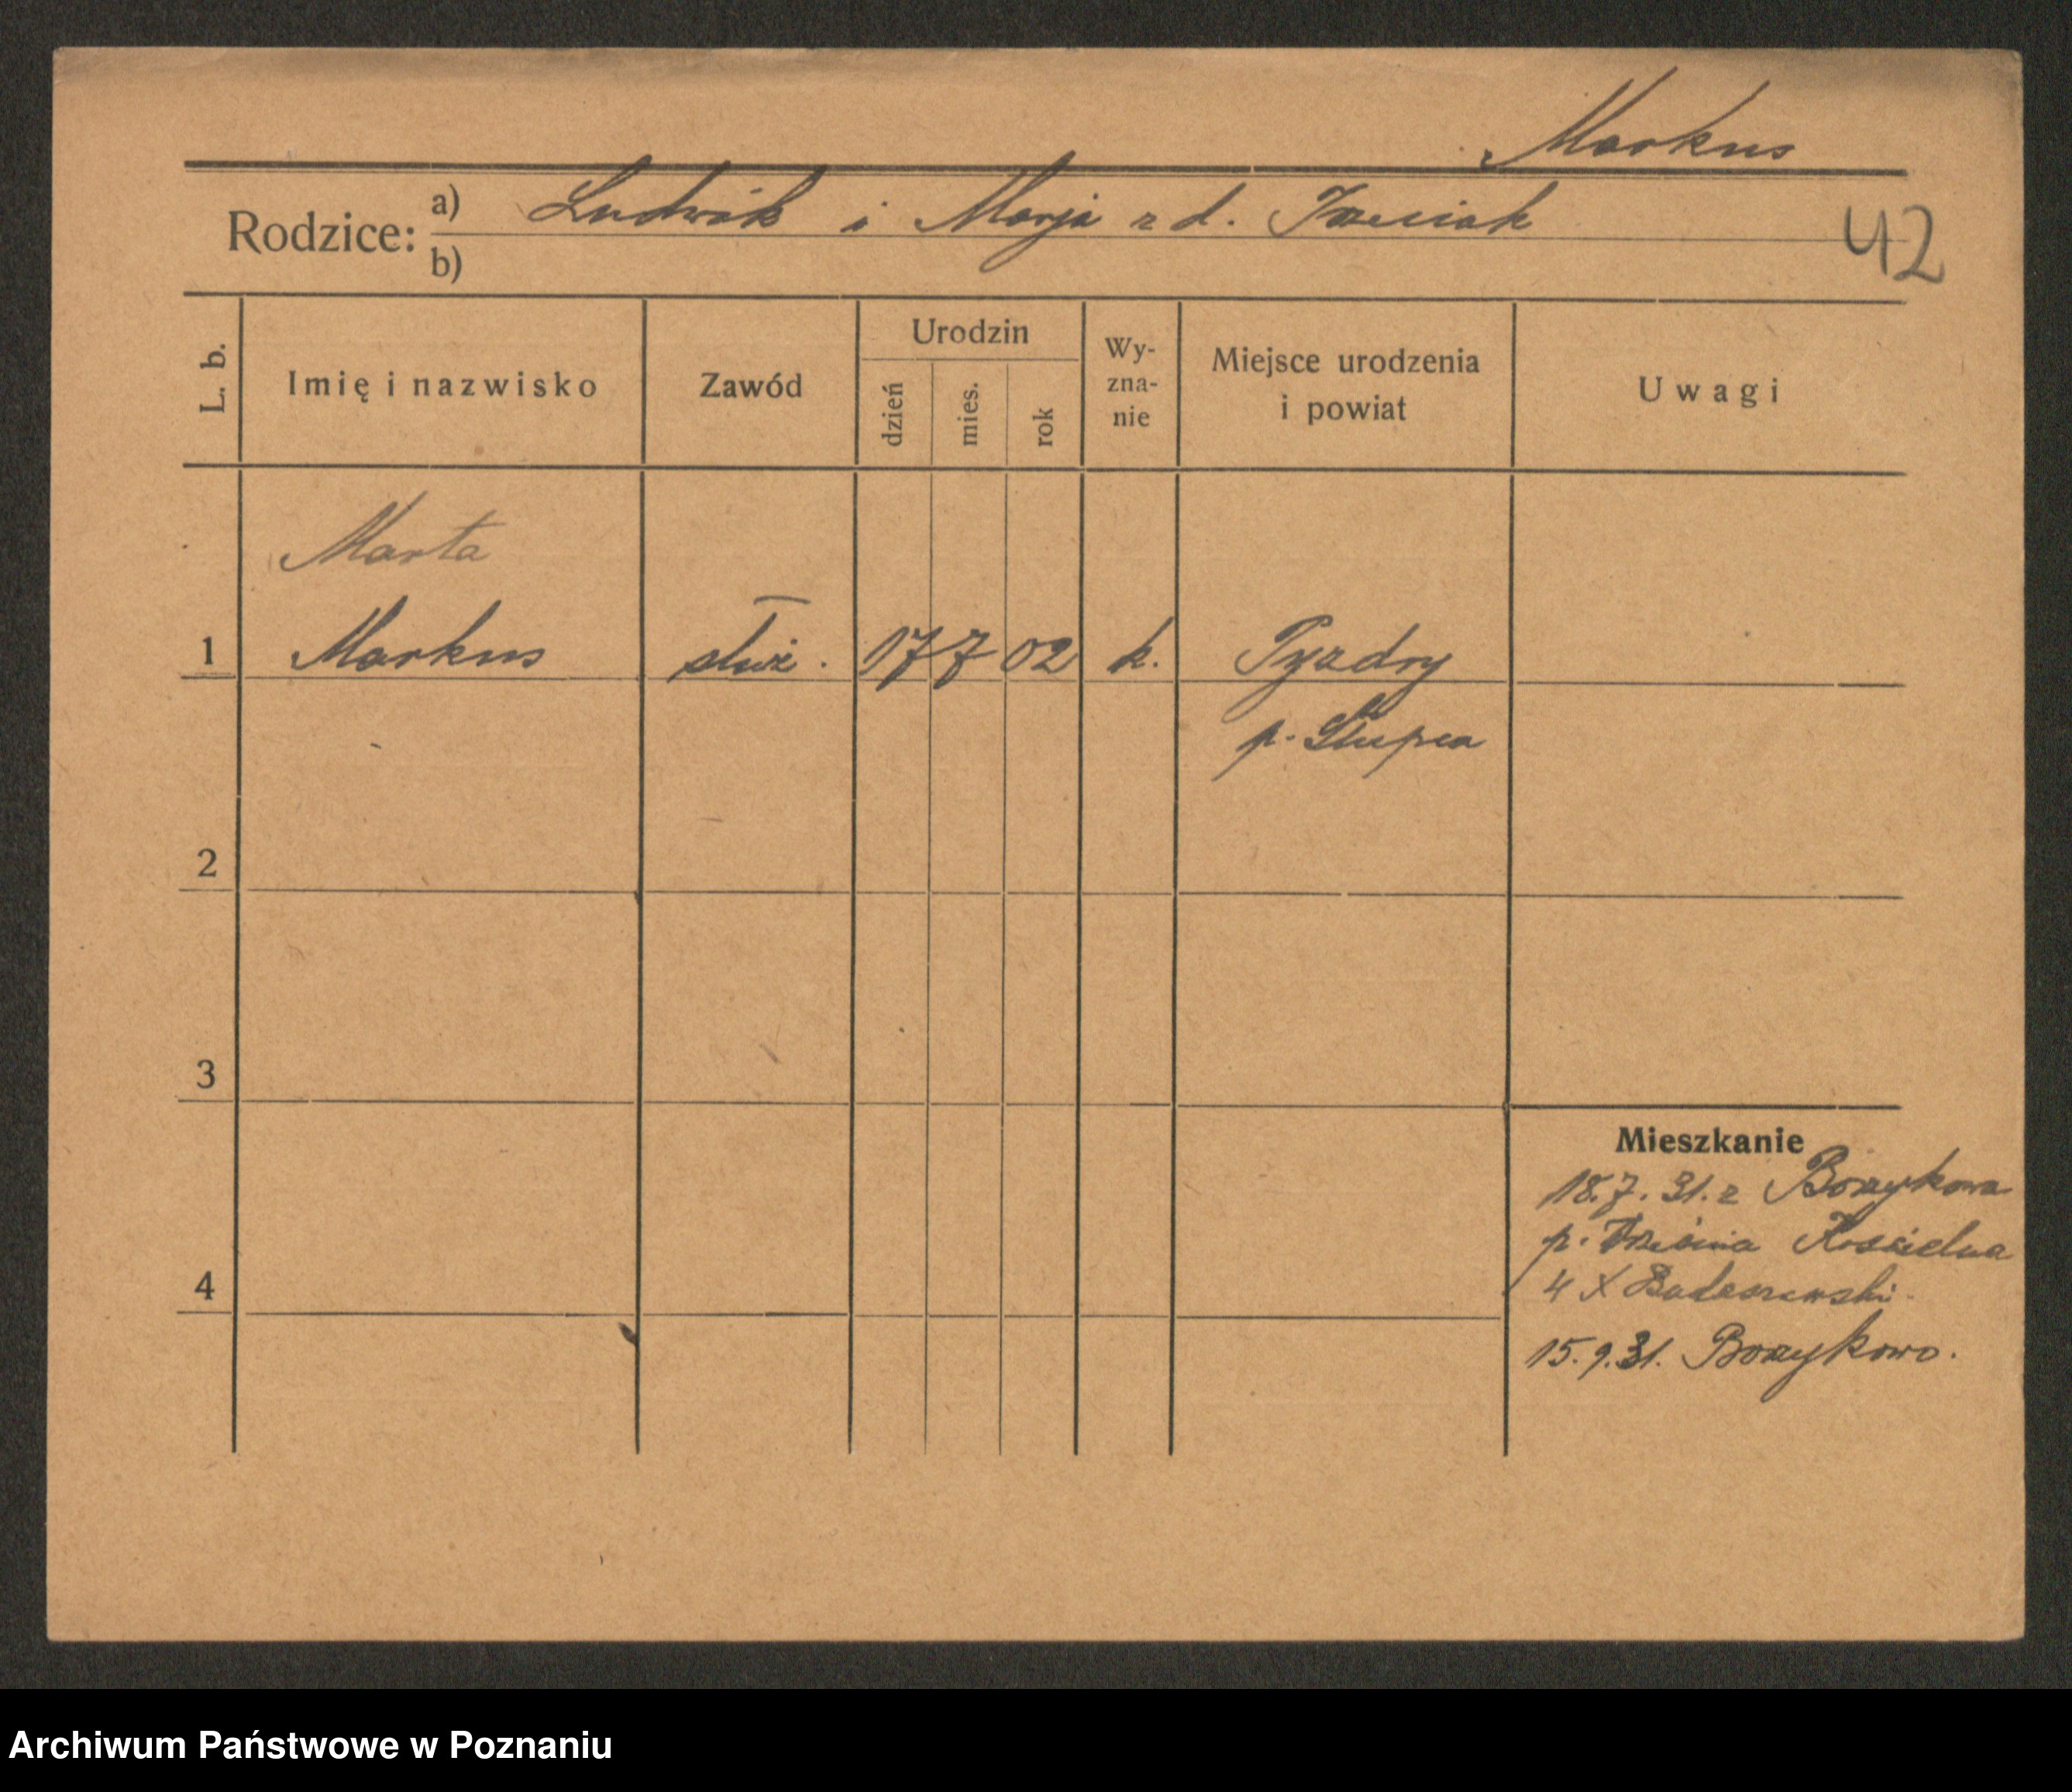 Markus
Rodzice: a) Ludwik i Marja z d. Trzeciak
b)
42
L. b. Imię i nazwisko Zawód Urodzin dzień mies. rok Wy-zna-nie Miejsce urodzenia i powiat Uwagi
Marta
1 Markus służ. 17 7 02 k. Pyzdry
p. Słupca
2
3
Mieszkanie
18.7.31. z Borzykowa
p. Kościelna
4
4 X
15.9.31. Borzykowo.
Archiwum Państwowe w Poznaniu